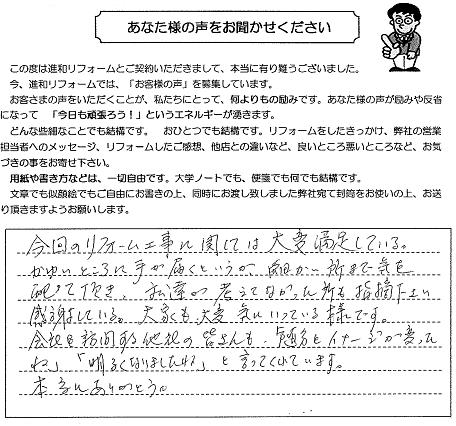 あなた様の声をお聞かせください
この度は進和リフォームとご契約いただきまして、本当に有り難うございました。
今、進和リフォームでは、「お客様の声」を募集しています。
お客さまの声をいただくことが、私たちにとって、何よりもの励みです。あなた様の声が励みや反省
になって 「今日も頑張ろう！」というエネルギーが湧きます。
どんな些細なことでも結構です。 おひとつでも結構です。リフォームをしたきっかけ、弊社の営業
担当者へのメッセージ、リフォームしたご感想、他店との違いなど、良いところ悪いところなど、お気
づきの事をお寄せ下さい。
用紙や書き方などは、一切自由です。大学ノートでも、便箋でも何でも結構です。
文章でも似顔絵でもご自由にお書きの上、同時にお渡し致しました弊社宛て封筒をお使いの上、お送
り頂きますようお願いします。
今回のリフォーム工事に関しては大変満足している。
かゆいところに手が届くというか、細かい所まで気を
使って頂き、私達の考えてなかった所も指摘下さい
感謝している。大家も大変気に入っている様です。
会社を訪問する他社の皆さんも、随分とイメージが変った
ね」「明るくなりましたね」と言ってくれています。
本当にありがとう。